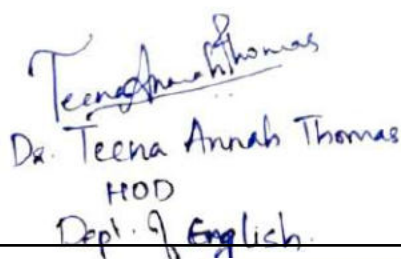 Teena Annah Thomas
Dr. Teena Annah Thomas
HOD
Dept. of English.